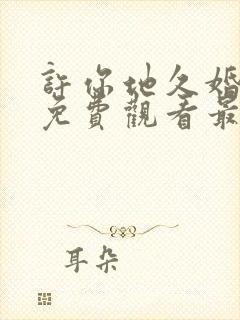 許你地久婚
免費觀看最
耳朵